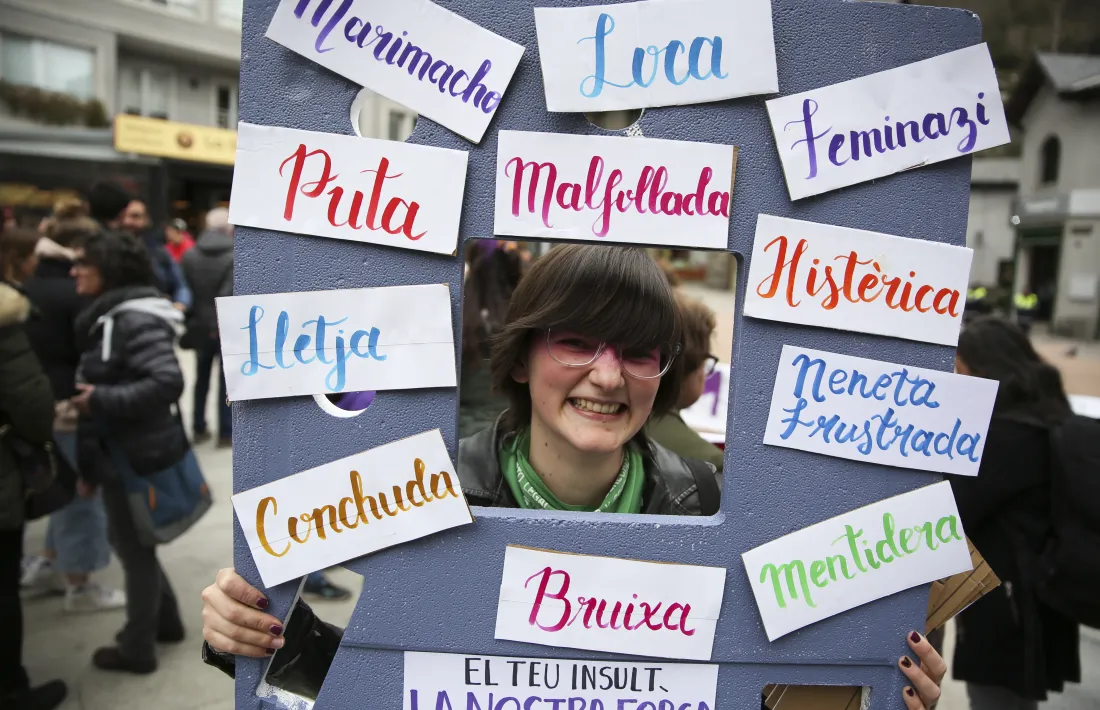 Marimacho
Loca
Feminazi
Puta
Malfollada
Histèrica
Lletja
Neneta
frustrada
Conchuda
Mentidera
Bruixa
EL TEU INSULT,
LA NOSTRA FORÇA